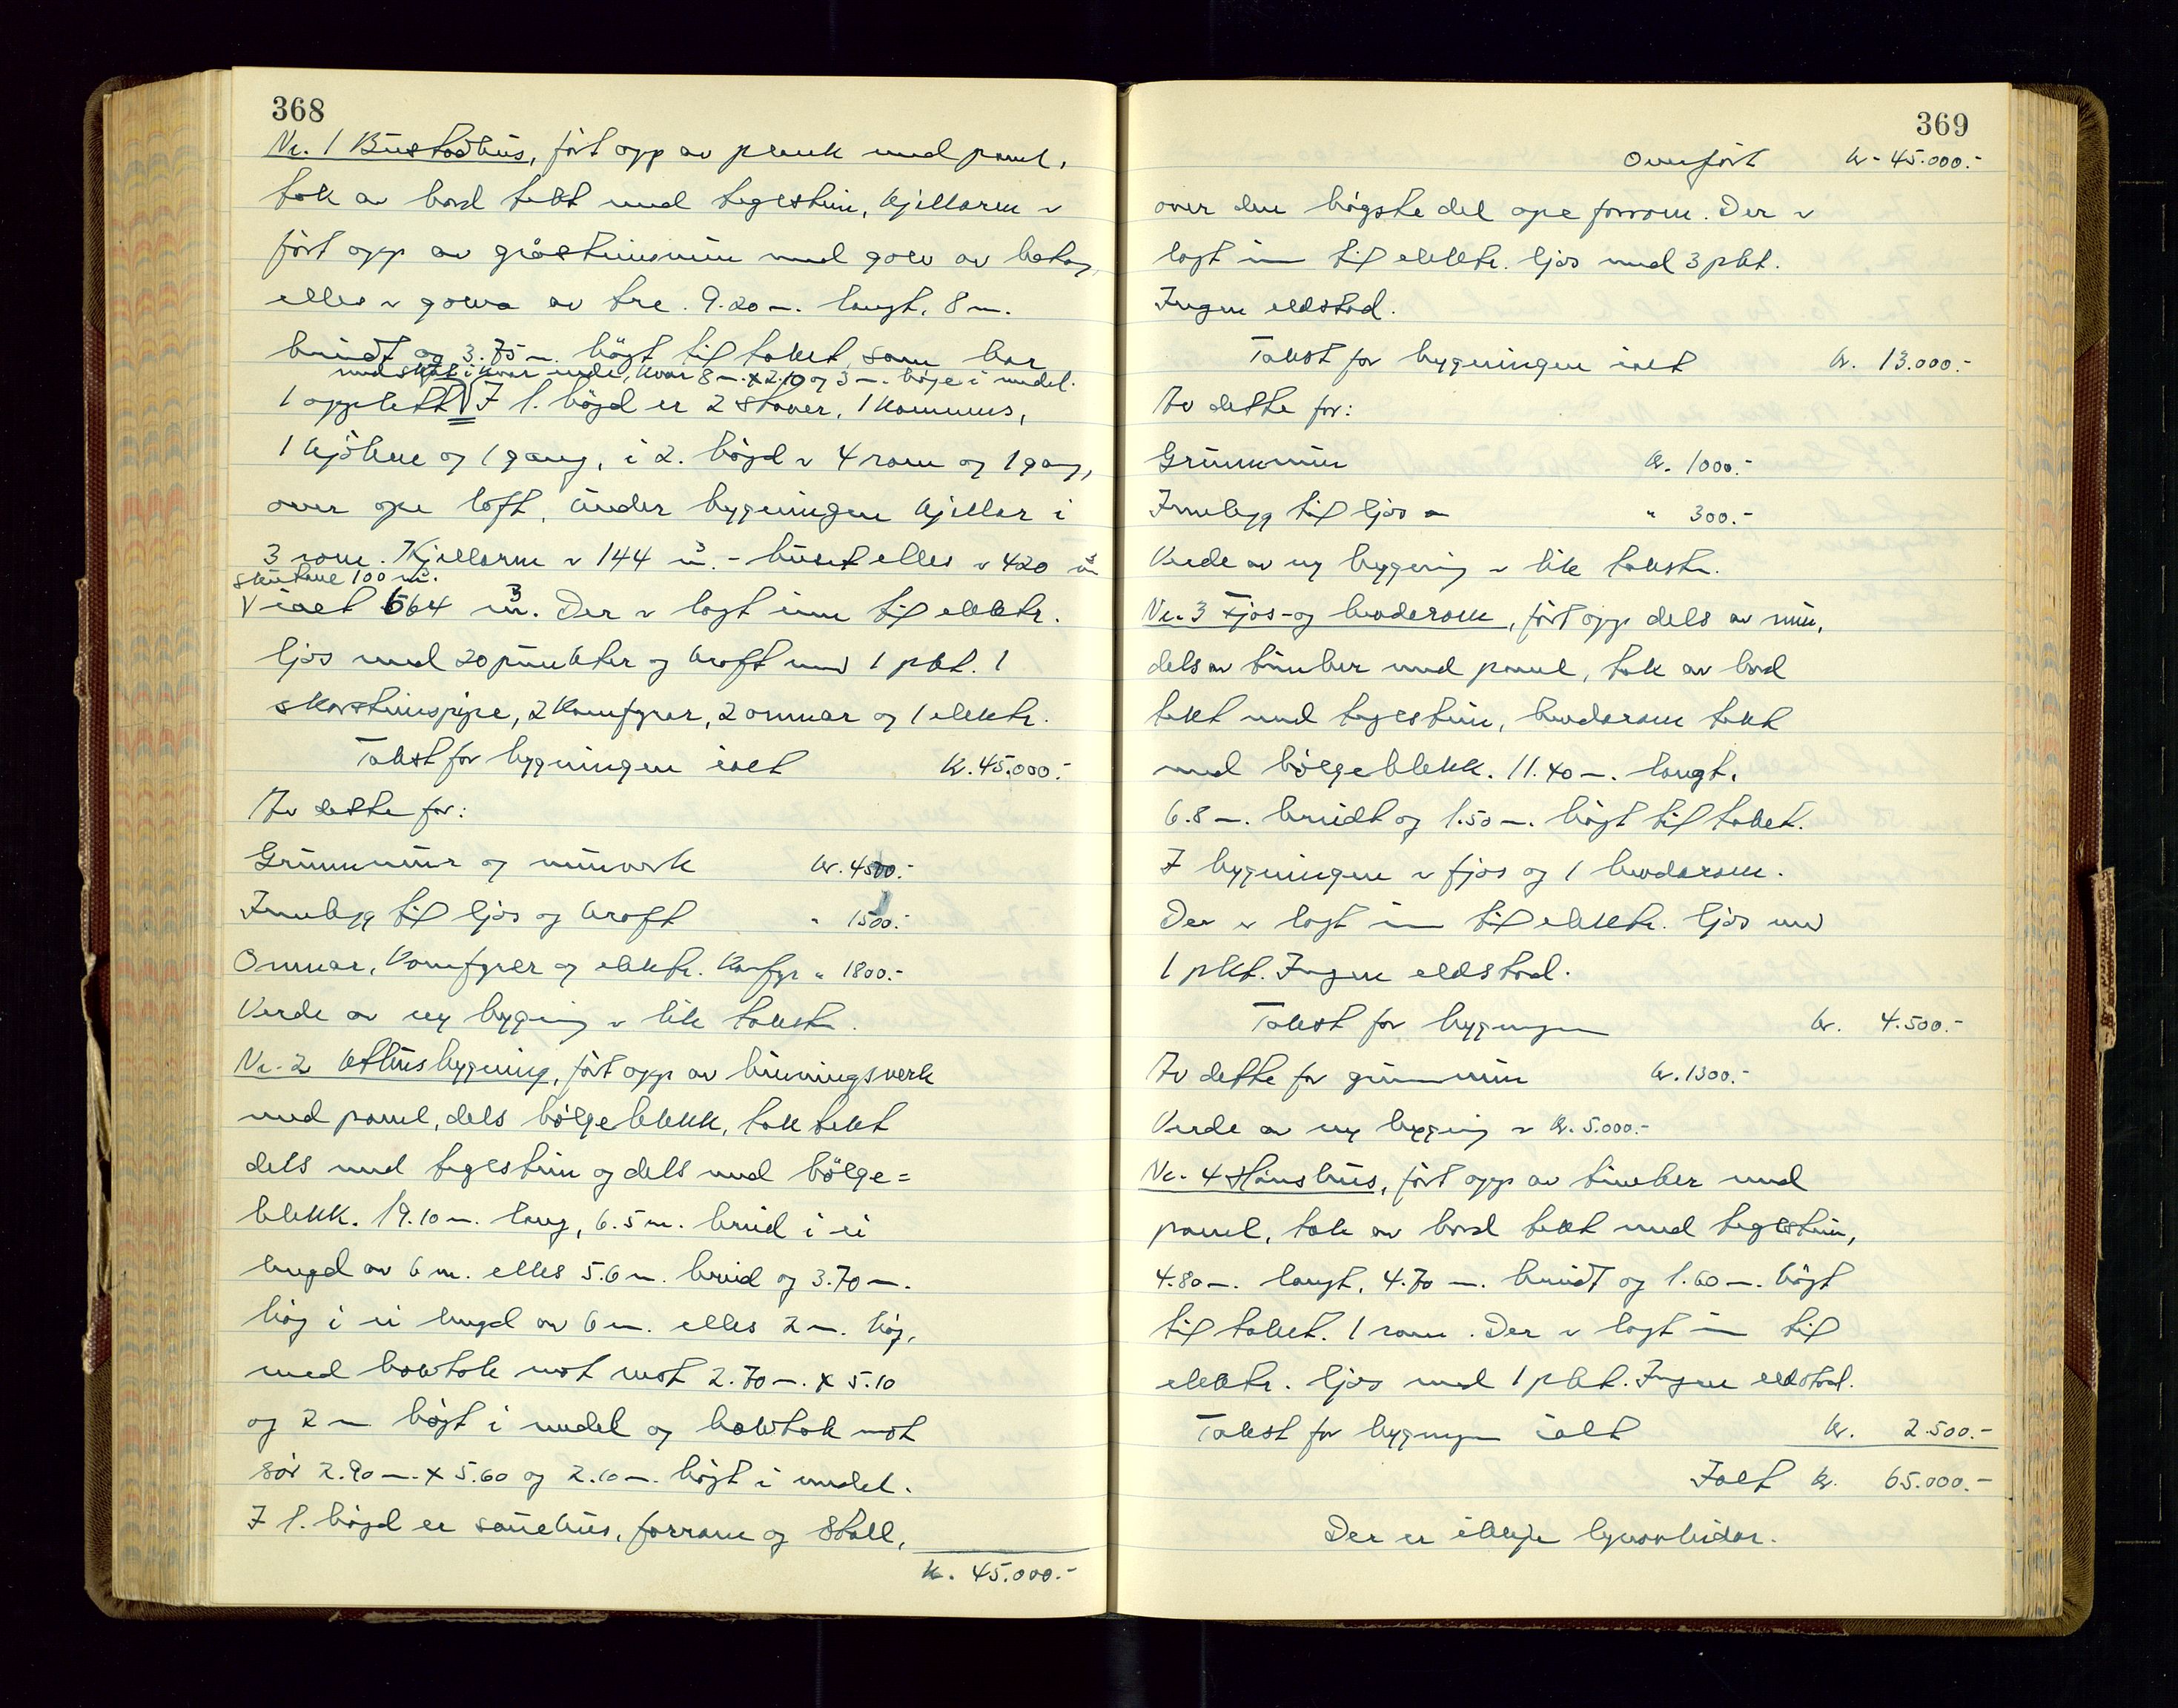 368
Nr. 1 Bustadhus, ført opp av plank med panel,
tak av bord tekt med teglstein, kjellaren er
ført opp av gråsteinsmur med golv av betong,
elles er golva av tre. 9.20 m. langt, 8 m.
breidt og 3.75 m. høgt til taket, som har
med skut i kvar ende, kvar 8 m. x 2.10 og 3 m. høge i medel.
1 opplett V I 1. høgd er 2 stover, 1 kammers,
1 kjøken og 1 gang, i 2. høgd er 4 rom og 1 gang,
over ope loft, under bygningen kjellar i
3 rom. Kjellaren er 144 m³ - huset elles er 420 m³
skutane 100 m³.
V ialt 664 m³. Der er lagt inn til elektr.
ljos med 20 punkter og kraft med 1 pkt. 1
skorsteinspipe, 2 komfyrer, 2 omnar og 1 elektr.
Takst for bygningen ialt kr. 45.000.-
Av dette for:
Grunnmur og murverk kr. 4500.-
Innlegg til ljos og kraft " 1500.-
Omnar, komfyrer og elektr. komfyr " 1800.-
Verde av ny bygning er lik takst.
Nr. 2 Uthusbygning, ført opp av bindingsverk
med panel, dels bølgeblekk, tak tekt
dels med teglstein og dels med bølge=
blekk. 19.10 m. lang, 6.5 m. breid i ei
lengd av 6 m. elles 5.6 m. breid og 3.70 m.
høg i ei lengd av 6 m. elles 2 m. høg,
med halvtak mot vest 2.70 m. x 5.10
og 2 m høgt i medel og halvtak mot
sør 2.90 m. x 5.60 og 2.10 m. høgt i medel.
I 1. høgd er sauehus, forrom og stall,
kr. 45.000.-
369
Overført kr. 45.000.-
over den høgste del ope forrom. Der er
lagt inn til elektr. ljos med 3 pkt.
Ingen eldstad.
Takst for bygningen ialt kr. 13.000.-
Av dette for:
Grunnmur kr. 1000.-
Innlegg til ljos " 300.-
Verde av ny bygning er lik takst.
Nr. 3 Fjos- og høderom, ført opp dels av mur,
dels av timber med panel, tak av bord
tekt med teglstein, høderom tekt
med bølgeblekk. 11.40 m. langt,
6.8 m. breidt og 1.50 m. høgt til taket.
I bygningen er fjos og 1 høderom.
Der er lagt inn til elektr. ljos med
1 pkt. Ingen eldstad.
Takst for bygningen kr. 4.500.-
Av dette for grunnmur kr. 1300.-
Verde av ny bygning er kr. 5.000.-
Nr. 4 Hønshus, ført opp av timber med
panel, tak av bord tekt med teglstein,
4.80 m. langt, 4.70 m. breidt og 1.60 m. høgt
til taket. 1 rom. Der er lagt inn til
elektr. ljos med 1 pkt. Ingen eldstad.
Takst for bygningen ialt kr. 2.500.-
Ialt kr. 65.000.-
Der er ikkje lynavleidar.